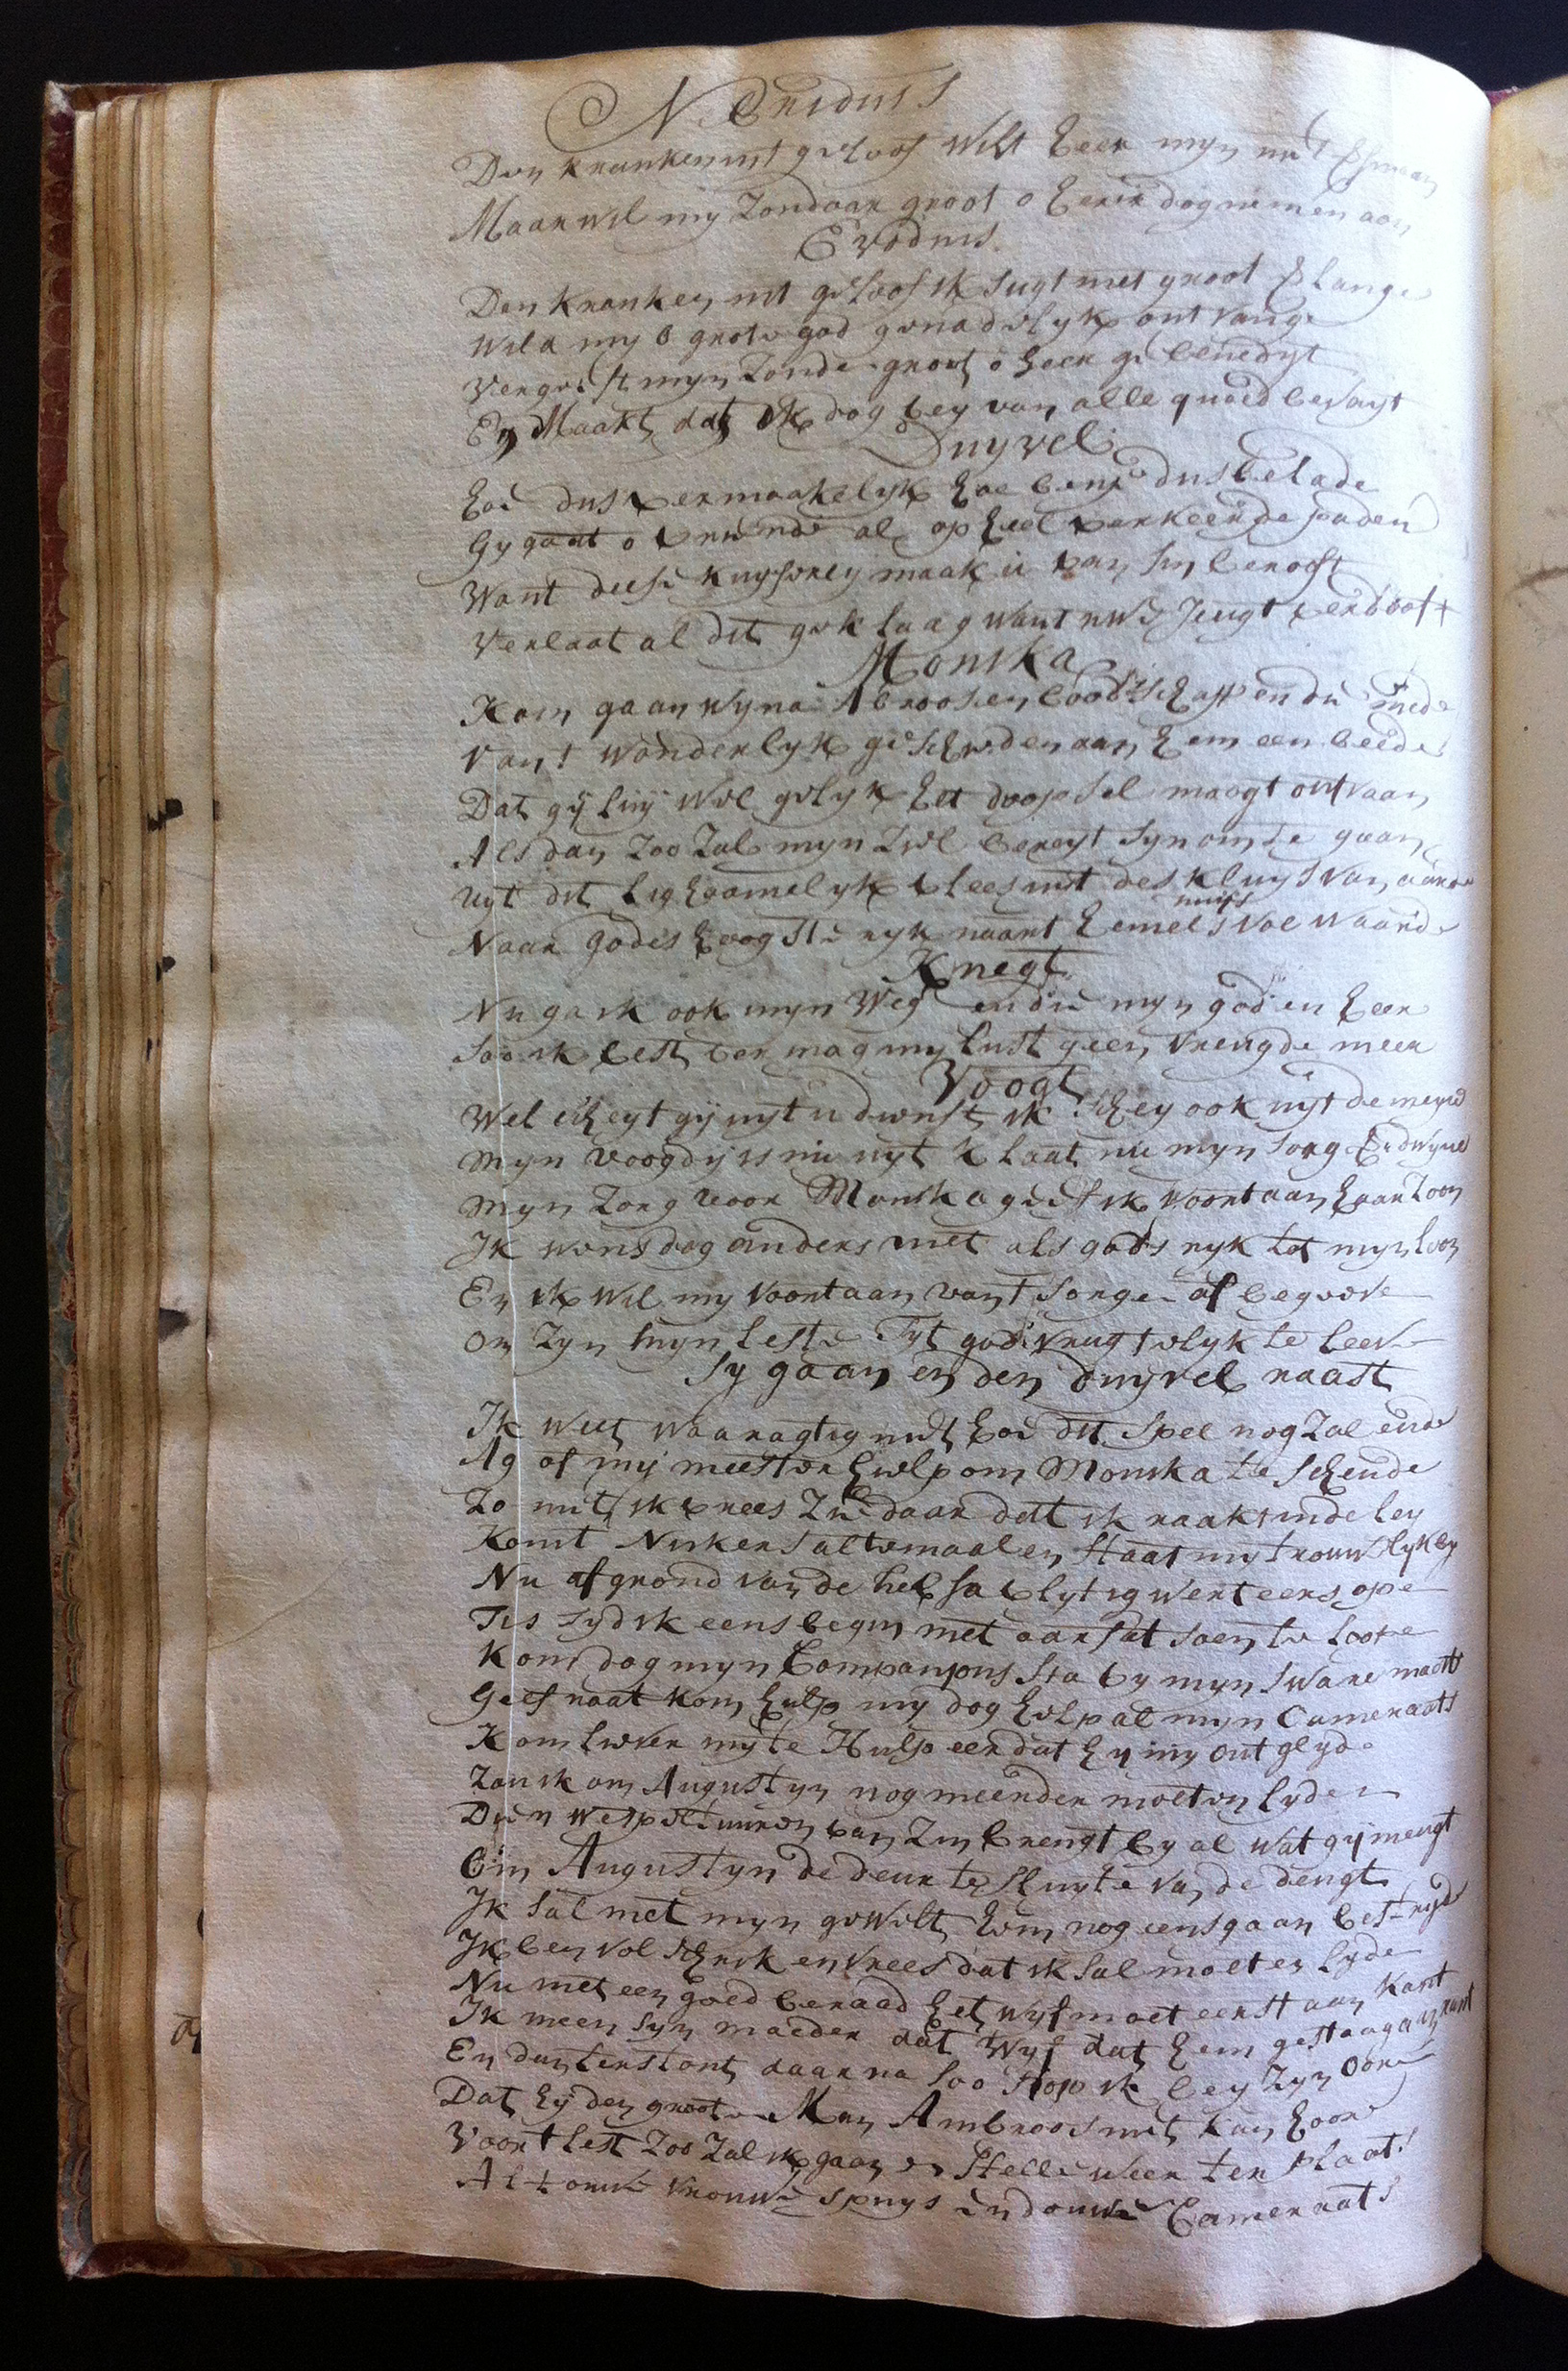 N Eridius
Den kranken int geloof wilt heer myn niet
Maar wil my Zondaar groot o heere dog nemen aan
Evodius
Den kranken int geloof ik sugt met groot
Wilt my o grote god genadelyk ontvange
Vergeeft myn Zonde groot o heer ge benedyt
En Maakt dat ik dog bey van alle quaed bevrijt
Duyvel
hoe dus vermaakelyk hoe benje dus belade
Gy gaat o vrinde al op heel verkeerde paden
Want deese kuyserey maak u van sin berooft
Verlaat al dit geklaag want uwe Jeugt verdooft
Monika
Kom gaan wyna Abroos en boodtschappen die mede
Vant wonderlyk geschieden aan hem een beede
Dat gij luij wel gelyk het doopsel moogt ontvaan
Als dan Zoo Zal myn Ziel bereyt syn om te gaan
uyt dit lighaamelyk vlees uit des kluys van aarde
Naar godes hoogste ryk naart hemels huys vol waarde
Knegt
Nu ga ik ook myn Weg en die myn god en heer
soo ik best vermag my lust geen vreugde meer
Voogt
Wel scheyt gij uyt u dienst ik schey ook uyt de myne
Myn voogdy is nu uyt k laat nu myn sorg verdwyne
Myn Zorg voor Monika geef ik voortaan haar Zoon
Ik wens dog anders niet als gods ryk tot myn loon
En ik wil my voortaan vant sorge af begeeve
Om Zyn myn leste Tyt god vrugtelyk te leeve
Sy gaan en den duyvel raast
Ik weet waaragtig niet hoe dit spel nog Zal ende
Ag of mij meester hielp om Monika te schende
Zo niet ik vrees Zie daar dat ik raak inde ley
Komt Nikers altemaal en staat my trouwelyk by
Nu afgrond van de hel sa vlytig wert eens ope
Tis tyd ik eens begin met aarsat soen te loope
Kom dog myn Companjons sta by myn sware maats
Geef raat kom hulp my dog help al myn Cameraats
Kom liever my te Hulp eer dat hy my ontglyde
Zou ik om Augustyn nog meerder moeten lyde
Dien van Zin brengt by al wat gij meugt
Om Augustyn de deur te sluyte van de deugt
Ik sal met myn gewelt hem nog eens gaan bestryde
Ik ben vol schrik en vrees dat ik sal moeten lyde
Nu met een goed beraad het wyf moet eerst aan kant
Ik meen syn moeder dat Wyf dat hem gestaag aanrant
En dan terstont daar na soo stop ik bey Zyn oore
Dat hij den groote Man Ambroos niet kan hoore
Voort lest Zoo Zal ik gaan en stelle weer ter plaats
Al t oude vrouwe spuys en douwe Cameraats